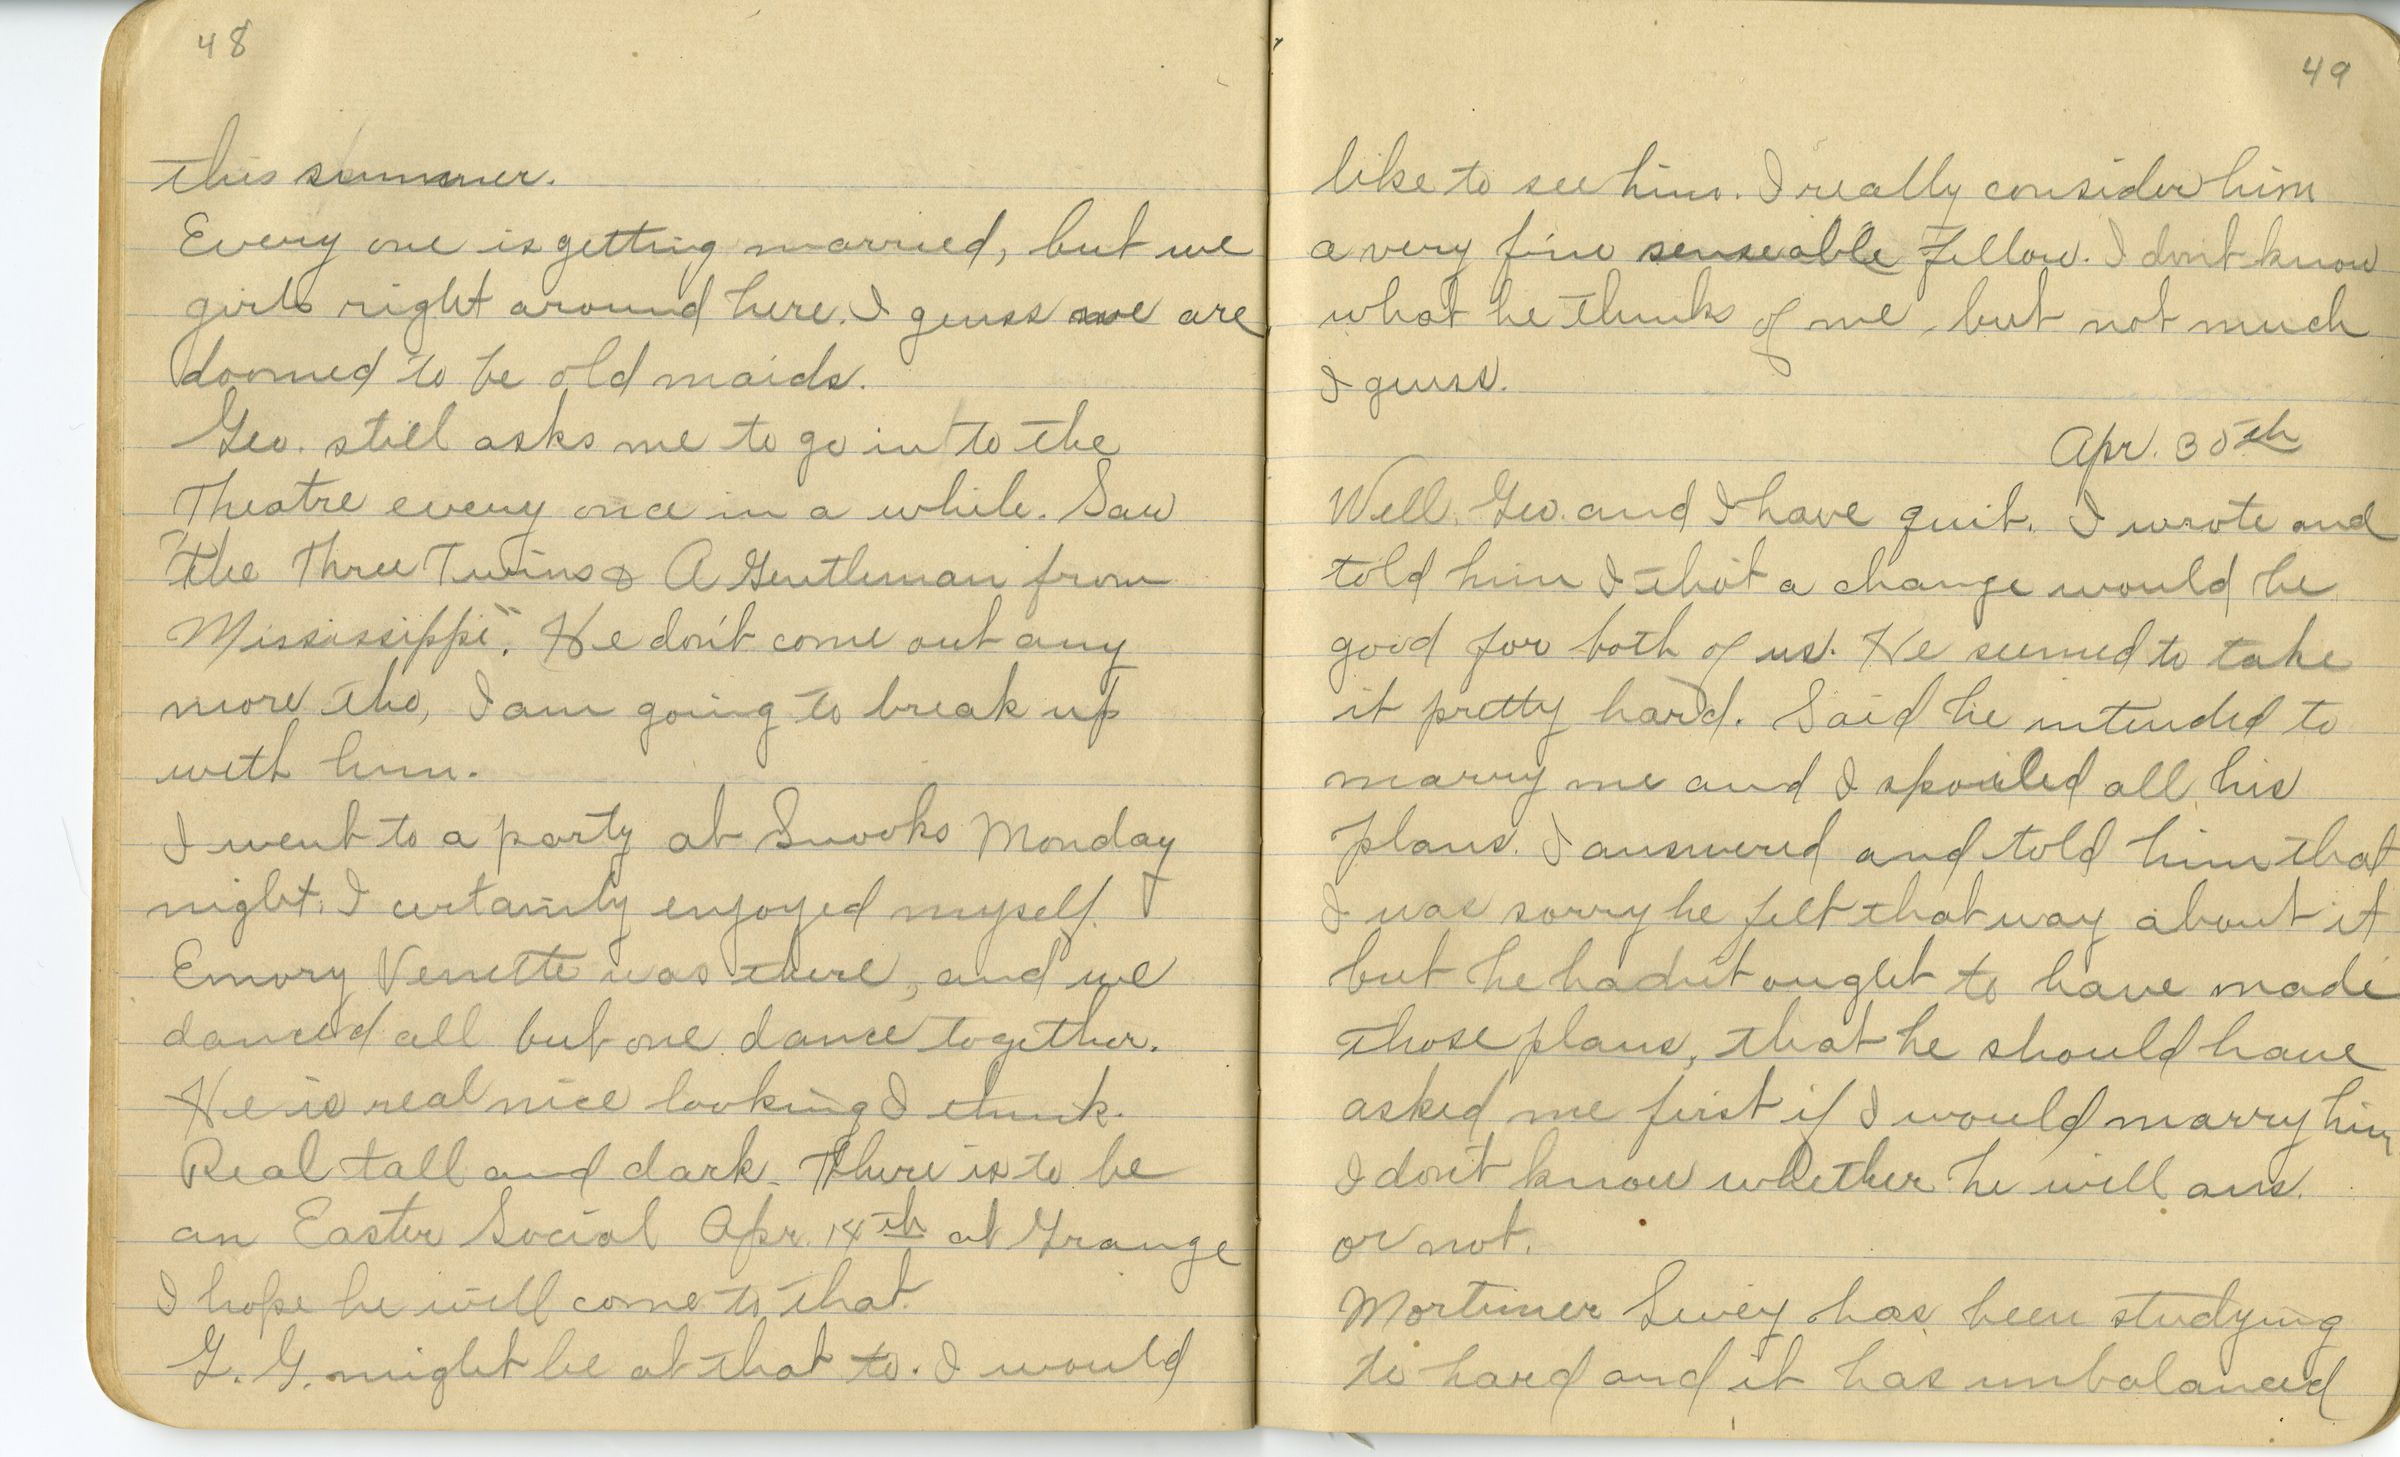 48
this summer.
Every one is getting married, but we
girls right around here. I geuss we are
doomed to be old maids.
Geo. still asks me to go in to the
Theatre every once in a while. Saw
"The Three Twins & A Gentleman from
Mississippi". He don't come out any
more tho, I am going to break up
with him.
I went to a party at Snooks Monday
night. I certainly enjoyed myself.
Emory Vernette was there, and we
danced all but one dance together.
He is real nice looking I think.
Real tall and dark. There is to be
an Easter Social Apr. 14th at Grange
I hope he will come to that.
G. G. might be at that to. I would
49
like to see him. I really consider him
a very fine senseable fellow. I don't know
what he thinks of me, but not much
I geuss.
Apr. 30th
Well, Geo. and I have quit. I wrote and
told him I thot a change would be
good for both of us. He seemed to take
it pretty hard. Said he intended to
marry me and I spoiled all his
plans. I answered and told him that
I was sorry he felt that way about it
but he hadn't ought to have made
those plans, that he should have
asked me first if I would marry him
I don't know whether he will ans.
or not.
Mortimer has been studying
to hard and it has unbalanced